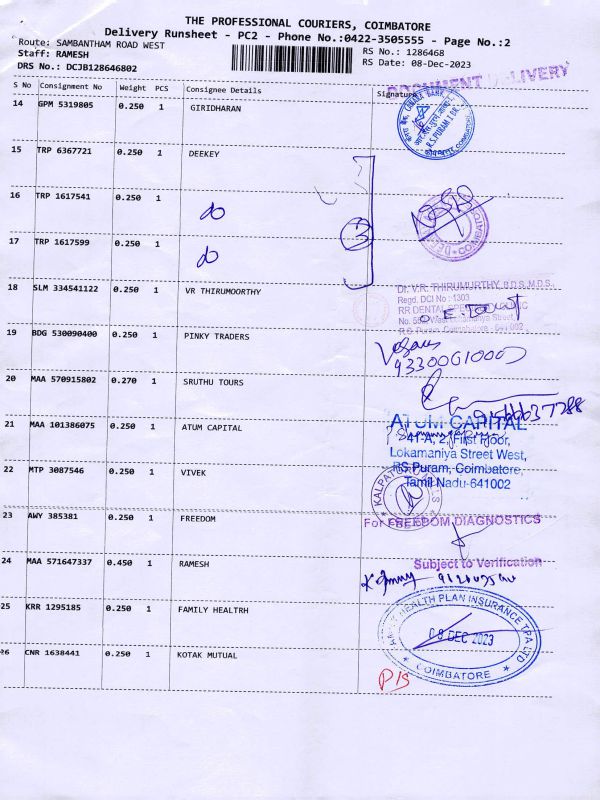 THE PROFESSIONAL COURIERS, COIMBATORE
Delivery Runsheet - PC2 - Phone No.:0422-3505555 - Page No.:2
Route: SAMBANTHAM ROAD WEST
RS No.: 1286468
Staff: RAMESH
RS Date: 08-Dec-2023
DRS No.: DCJB128646802
DOCUMENT DELIVERY
S No Consignment No Weight PCS Consignee Details Signature
14 GPM 5319805 0.250 1 GIRIDHARAN
CANARA BANK
R.S.PURAM
15 TRP 6367721 0.250 1 DEEKEY
16 TRP 1617541 0.250 1 do
3
COIMBATORE
17 TRP 1617599 0.250 1 do
18 SLM 334541122 0.250 1 VR THIRUMOORTHY
Dr. V.R. THIRUMURTHY, B.D.S., M.D.S.,
Regd. DCI No : 1303
RR DENTAL
19 BDG 530090400 0.250 1 PINKY TRADERS
9330061000
20 MAA 570915802 0.270 1 SRUTHU TOURS
21 MAA 101386075 0.250 1 ATUM CAPITAL
ATUM CAPITAL
41-A, 2, First Floor,
Lokamaniya Street West,
RS Puram, Coimbatore,
Tamil Nadu-641002
22 MTP 3087546 0.250 1 VIVEK
23 AWY 385381 0.250 1 FREEDOM
For FREEDOM DIAGNOSTICS
24 MAA 571647337 0.450 1 RAMESH
Subject to Verification
25 KRR 1295185 0.250 1 FAMILY HEALTRH
HEALTH PLAN INSURANCE TPA LTD
08 DEC 2023
COIMBATORE
26 CNR 1638441 0.250 1 KOTAK MUTUAL
P/S